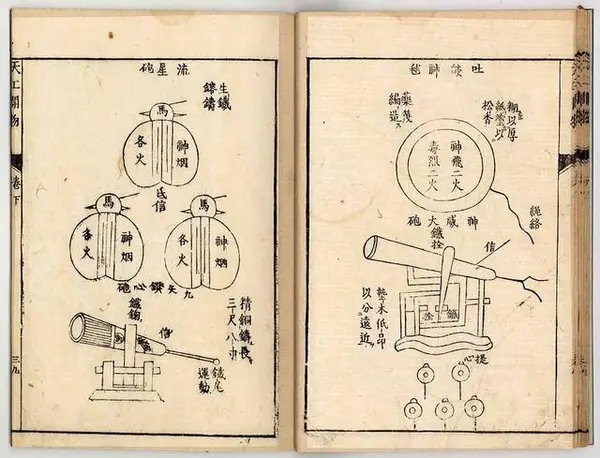 吐燄神毬
糊以厚
紙塗以
松香
編造
神飛二火
毒烈二火
繩絡
神威大砲
鐵栓
信
鐵栓
墊木低昂
以分遠近
提心
流星砲
生鐵
鎔鑄
馬
神烟
各火
信
馬
神烟
各火
馬
神烟
各火
九矢鑽心砲
精銅鑄長
三尺八寸
信
鐵尾
運動
天工開物
卷下
三九